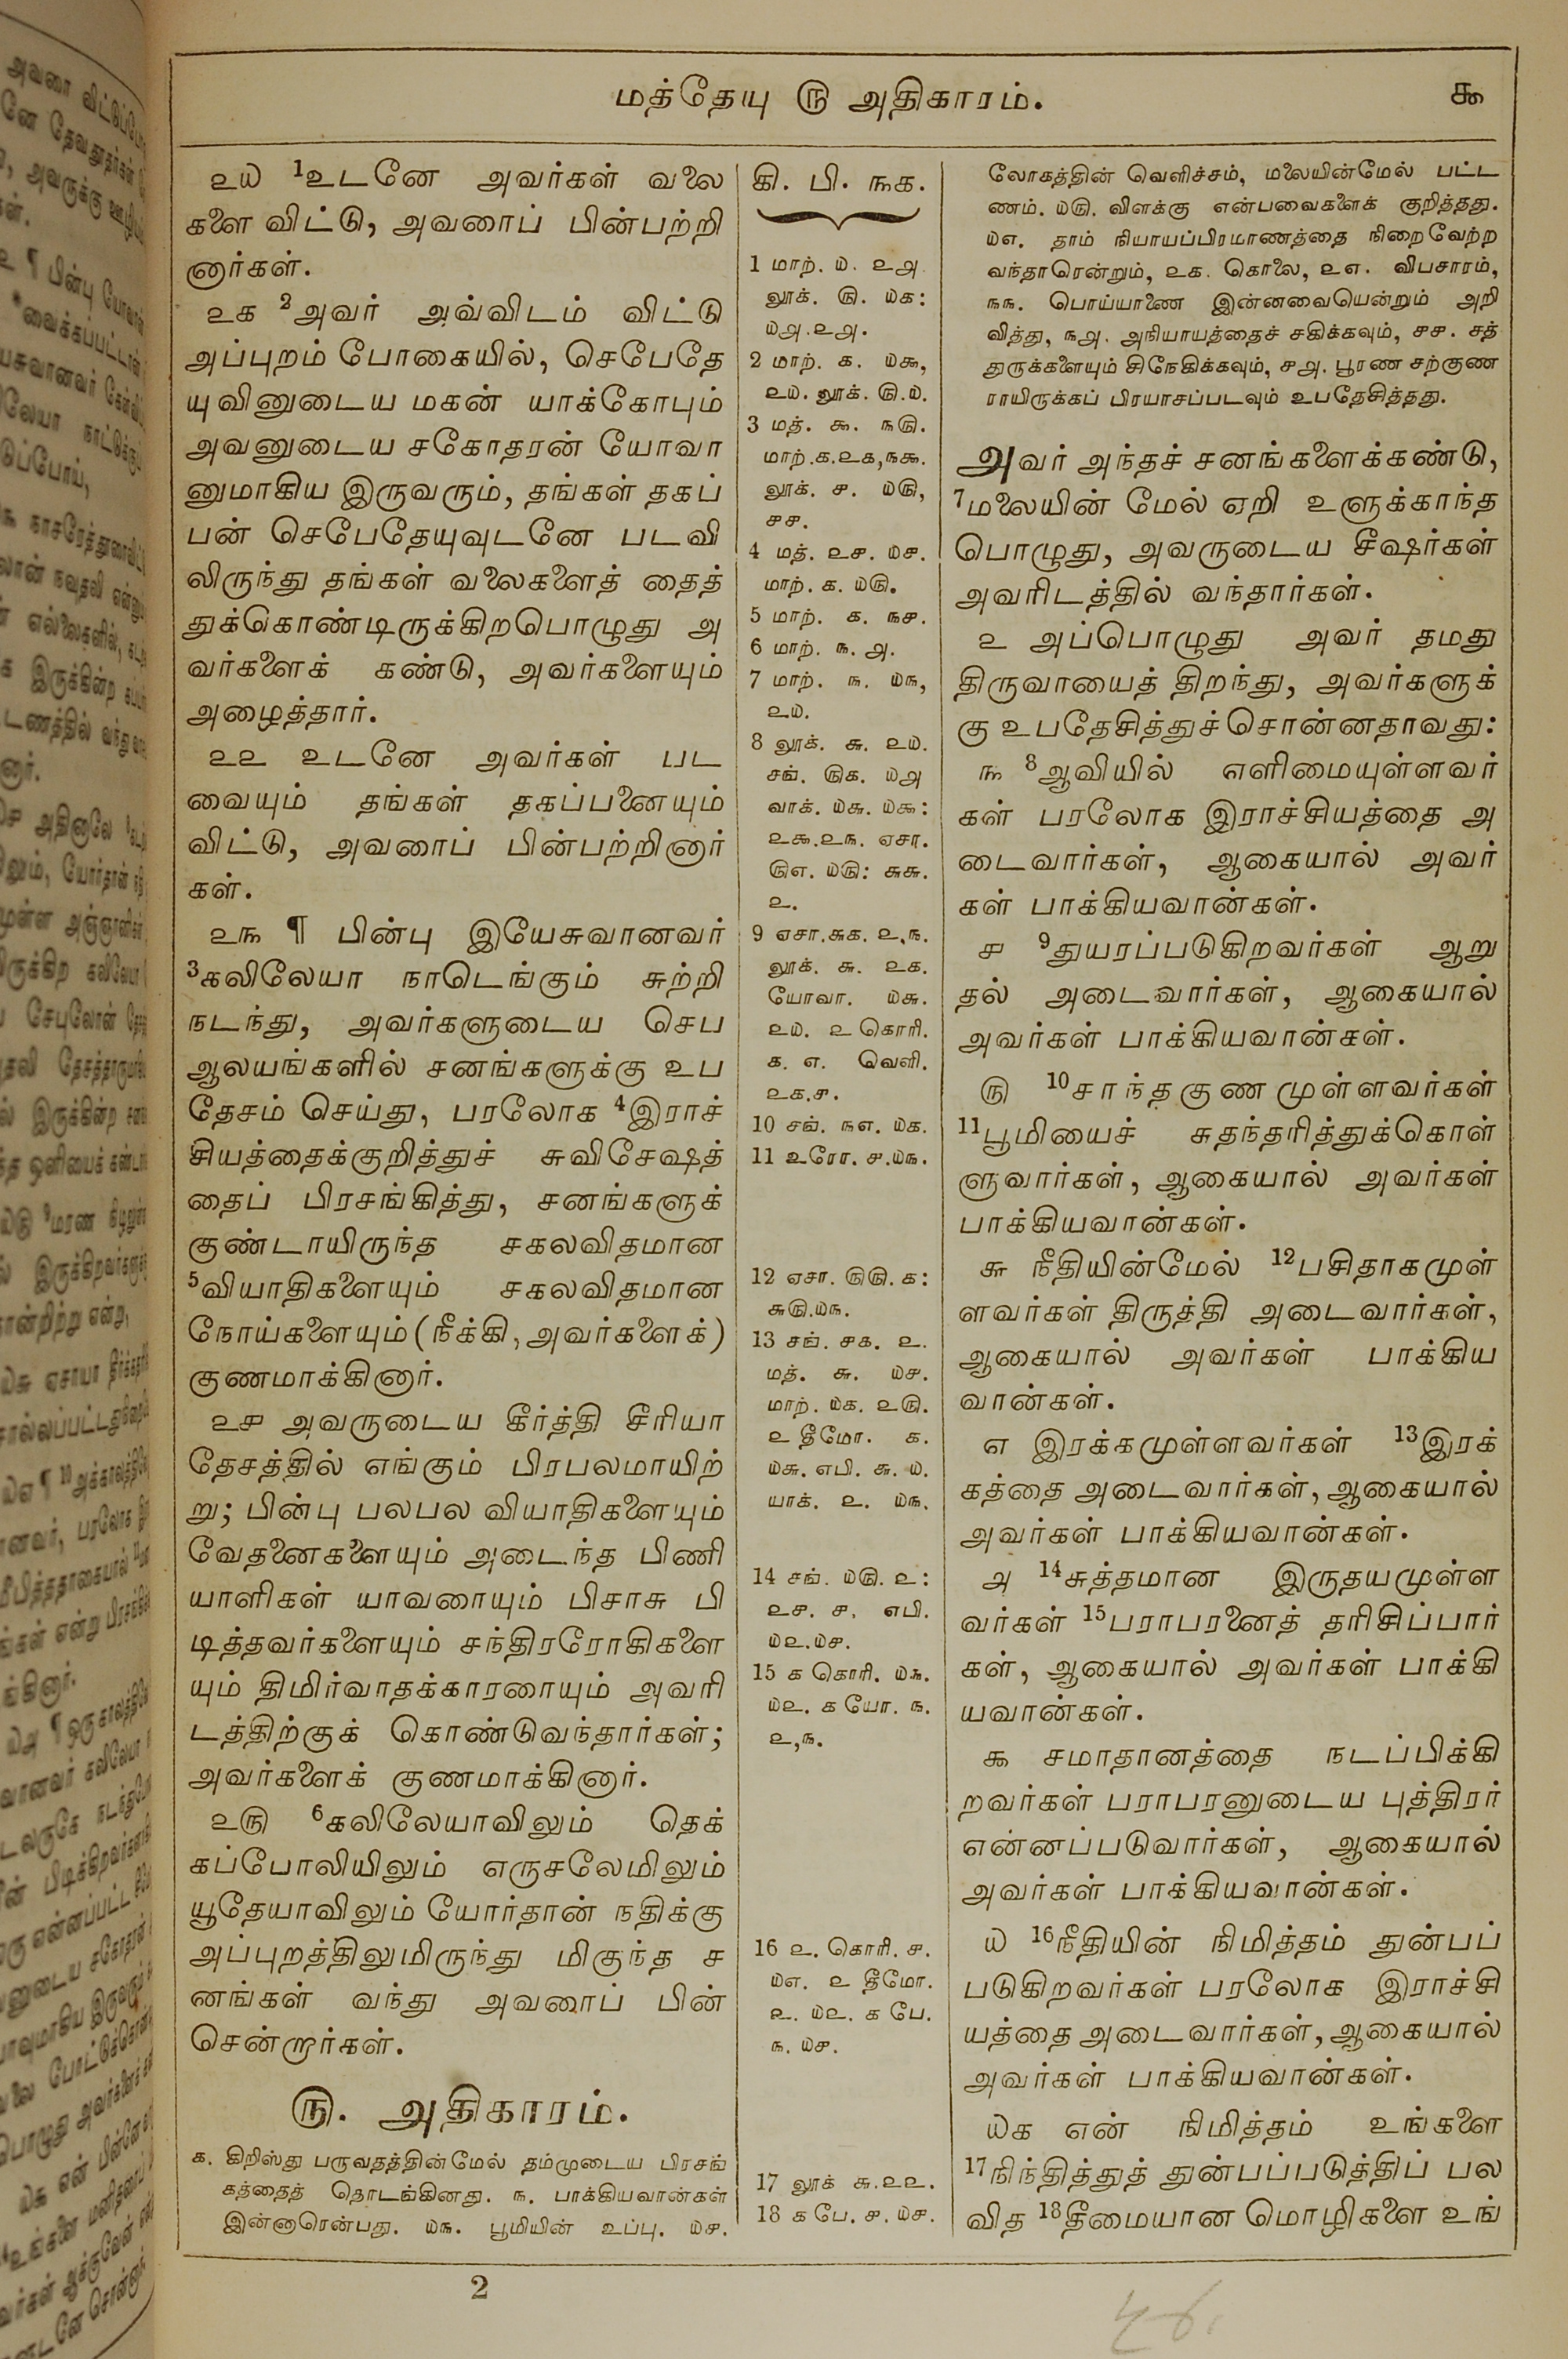 மத்தேயு ௫ அதிகாரம்.
௯
௨௰ 1உடனே அவர்கள் வலை
களை விட்டு, அவரைப் பின்பற்றி
னார்கள்.
௨௧ 2அவர் அவ்விடம் விட்டு
அப்புறம் போகையில், செபேதே
யுவினுடைய மகன் யாக்கோபும்
அவனுடைய சகோதரன் யோவா
னுமாகிய இருவரும், தங்கள் தகப்
பன் செபேதேயுவுடனே படவி
லிருந்து தங்கள் வலைகளைத் தைத்
துக்கொண்டிருக்கிறபொழுது அ
வர்களைக் கண்டு, அவர்களையும்
அழைத்தார்.
௨௨ உடனே அவர்கள் பட
வையும் தங்கள் தகப்பனையும்
விட்டு, அவரைப் பின்பற்றினார்
கள்.
௨௩ ¶ பின்பு இயேசுவானவர்
3கலிலேயா நாடெங்கும் சுற்றி
நடந்து, அவர்களுடைய செப
ஆலயங்களில் சனங்களுக்கு உப
தேசம் செய்து, பரலோக 4இராச்
சியத்தைக்குறித்துச் சுவிசேஷத்
தைப் பிரசங்கித்து, சனங்களுக்
குண்டாயிருந்த சகலவிதமான
5வியாதிகளையும் சகலவிதமான
நோய்களையும் (நீக்கி, அவர்களைக்)
குணமாக்கினார்.
௨௪ அவருடைய கீர்த்தி சீரியா
தேசத்தில் எங்கும் பிரபலமாயிற்
று; பின்பு பலபல வியாதிகளையும்
வேதனைகளையும் அடைந்த பிணி
யாளிகள் யாவரையும் பிசாசு பி
டித்தவர்களையும் சந்திரரோகிகளை
யும் திமிர்வாதக்காரரையும் அவரி
டத்திற்குக் கொண்டுவந்தார்கள்;
அவர்களைக் குணமாக்கினார்.
௨௫ 6கலிலேயாவிலும் தெக்
கப்போலியிலும் எருசலேமிலும்
யூதேயாவிலும் யோர்தான் நதிக்கு
அப்புறத்திலுமிருந்து மிகுந்த ச
னங்கள் வந்து அவரைப் பின்
சென்றார்கள்.
௫. அதிகாரம்.
க. கிறிஸ்து பருவதத்தின்மேல் தம்முடைய பிரசங்
கத்தைத் தொடங்கினது. ௩. பாக்கியவான்கள்
இன்னாரென்பது. ௰௩. பூமியின் உப்பு. ௰௪.
கி. பி. ௩௧.
1 மாற். ௰. ௨௮
லூக். ௫. ௰௧:
௰௮.௨௮.
2 மாற். ௧. ௰௯,
௨௰. லூக். ௫.௰.
3 மத். ௯. ௩௫.
மாற்.௧.௨௧,௩௯.
லூக். ௪. ௰௫,
௪௪.
4 மத். ௨௪. ௰௪.
மாற். ௧. ௰௫.
5 மாற். ௧. ௩௪.
6 மாற். ௩. ௮.
7 மாற். ௩. ௰௩,
௨௰.
8 லூக். ௬. ௨௰.
சங். ௫௧. ௰௮
வாக். ௰௬. ௰௯:
௨௯.௨௩. ஏசா.
௫௭. ௰௫: ௬௬.
௨.
9 ஏசா.௬௧. ௨,௩.
லூக். ௬. ௨௧.
யோவா. ௰௬.
௨௰. ௨ கொரி.
௧. ௭. வெளி.
௨௧.௪.
10 சங். ௩௭. ௰௧.
11 உரோ. ௪.௰௩.
12 ஏசா. ௫௫. ௧:
௬௫.௰௩.
13 சங். ௪௧. ௨.
மத். ௬. ௰௪.
மாற். ௰௧. ௨௫.
௨ தீமோ. ௧.
௰௬. எபி. ௬. ௰.
யாக். ௨. ௰௩.
14 சங். ௰௫. ௨:
௨௪. ௪. எபி.
௰௨.௰௪.
15 ௧ கொரி. ௰௩.
௰௨. ௧ யோ. ௩.
௨,௩.
16 ௨. கொரி. ௪.
௰௭. ௨ தீமோ.
௨. ௰௨. ௧ பே.
௩. ௰௪.
17 லூக் ௬.௨௨.
18 ௧ பே. ௪. ௰௪.
லோகத்தின் வெளிச்சம், மலையின்மேல் பட்ட
ணம். ௰௫. விளக்கு என்பவைகளைக் குறித்தது.
௰௭. தாம் நியாயப்பிரமாணத்தை நிறைவேற்ற
வந்தாரென்றும், ௨௧. கொலை, ௨௭. விபசாரம்,
௩௩. பொய்யாணை இன்னவையென்றும் அறி
வித்து, ௩௮. அநியாயத்தைச் சகிக்கவும், ௪௪. சத்
துருக்களையும் சிநேகிக்கவும், ௪௮. பூரண சற்குண
ராயிருக்கப் பிரயாசப்படவும் உபதேசித்தது.
அவர் அந்தச் சனங்களைக்கண்டு,
7மலையின் மேல் ஏறி உளுக்காந்த
பொழுது, அவருடைய சீஷர்கள்
அவரிடத்தில் வந்தார்கள்.
௨ அப்பொழுது அவர் தமது
திருவாயைத் திறந்து, அவர்களுக்
கு உபதேசித்துச்சொன்னதாவது:
௩ 8ஆவியில் எளிமையுள்ளவர்
கள் பரலோக இராச்சியத்தை அ
டைவார்கள், ஆகையால் அவர்
கள் பாக்கியவான்கள்.
௪ 9துயரப்படுகிறவர்கள் ஆறு
தல் அடைவார்கள், ஆகையால்
அவர்கள் பாக்கியவான்கள்.
௫ 10சாந்தகுணமுள்ளவர்கள்
11பூமியைச் சுதந்தரித்துக்கொள்
ளுவார்கள், ஆகையால் அவர்கள்
பாக்கியவான்கள்.
௬ நீதியின்மேல் 12பசிதாகமுள்
ளவர்கள் திருத்தி அடைவார்கள்,
ஆகையால் அவர்கள் பாக்கிய
வான்கள்.
௭ இரக்கமுள்ளவர்கள் 13இரக்
கத்தை அடைவார்கள், ஆகையால்
அவர்கள் பாக்கியவான்கள்.
௮ 14சுத்தமான இருதயமுள்ள
வர்கள் 15பராபரனைத் தரிசிப்பார்
கள், ஆகையால் அவர்கள் பாக்கி
யவான்கள்.
௯ சமாதானத்தை நடப்பிக்கி
றவர்கள் பராபரனுடைய புத்திரர்
என்னப்படுவார்கள், ஆகையால்
அவர்கள் பாக்கியவான்கள்.
௰ 16நீதியின் நிமித்தம் துன்பப்
படுகிறவர்கள் பரலோக இராச்சி
யத்தை அடைவார்கள், ஆகையால்
அவர்கள் பாக்கியவான்கள்.
௰௧ என் நிமித்தம் உங்களை
17நிந்தித்துத் துன்பப்படுத்திப் பல
வித 18தீமையான மொழிகளை உங்
2